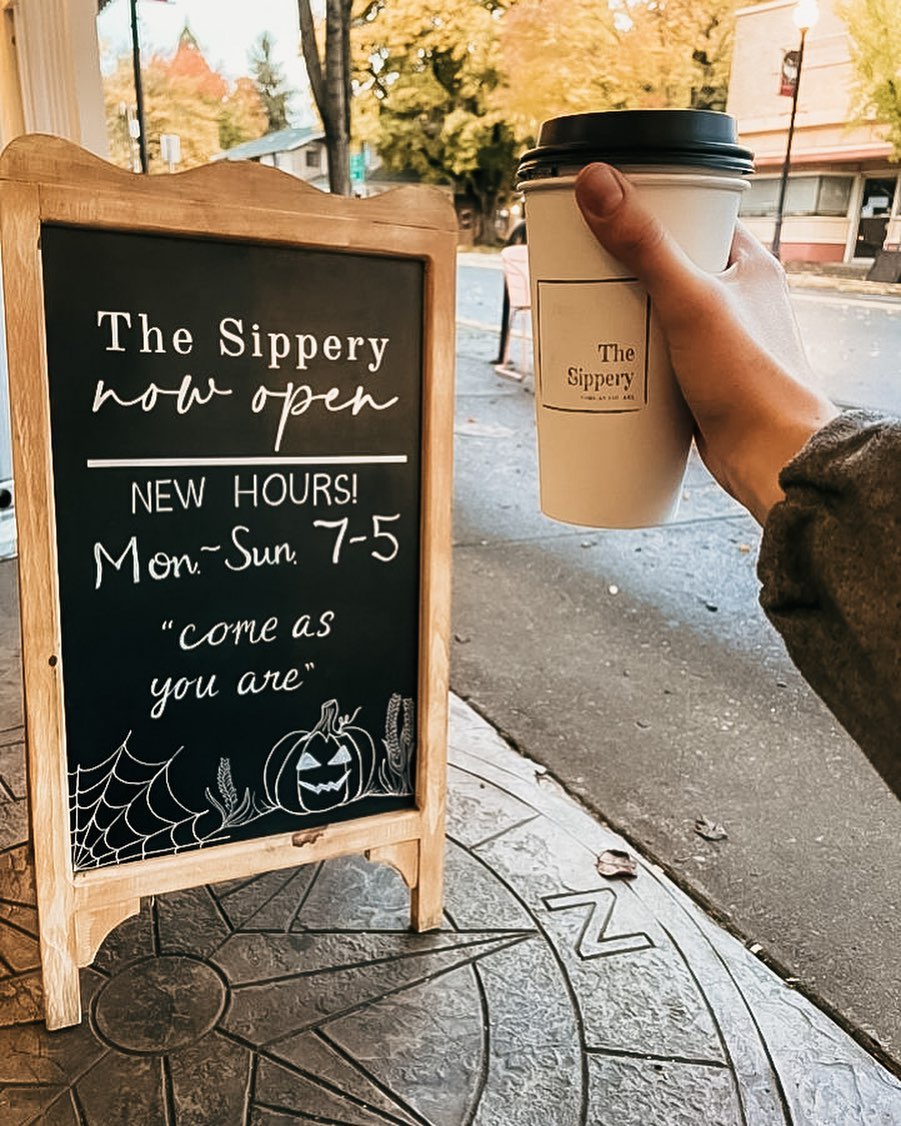 The Sippery
now open
NEW HOURS!
Mon.~Sun. 7-5
"come as
you are"
The
Sippery
N